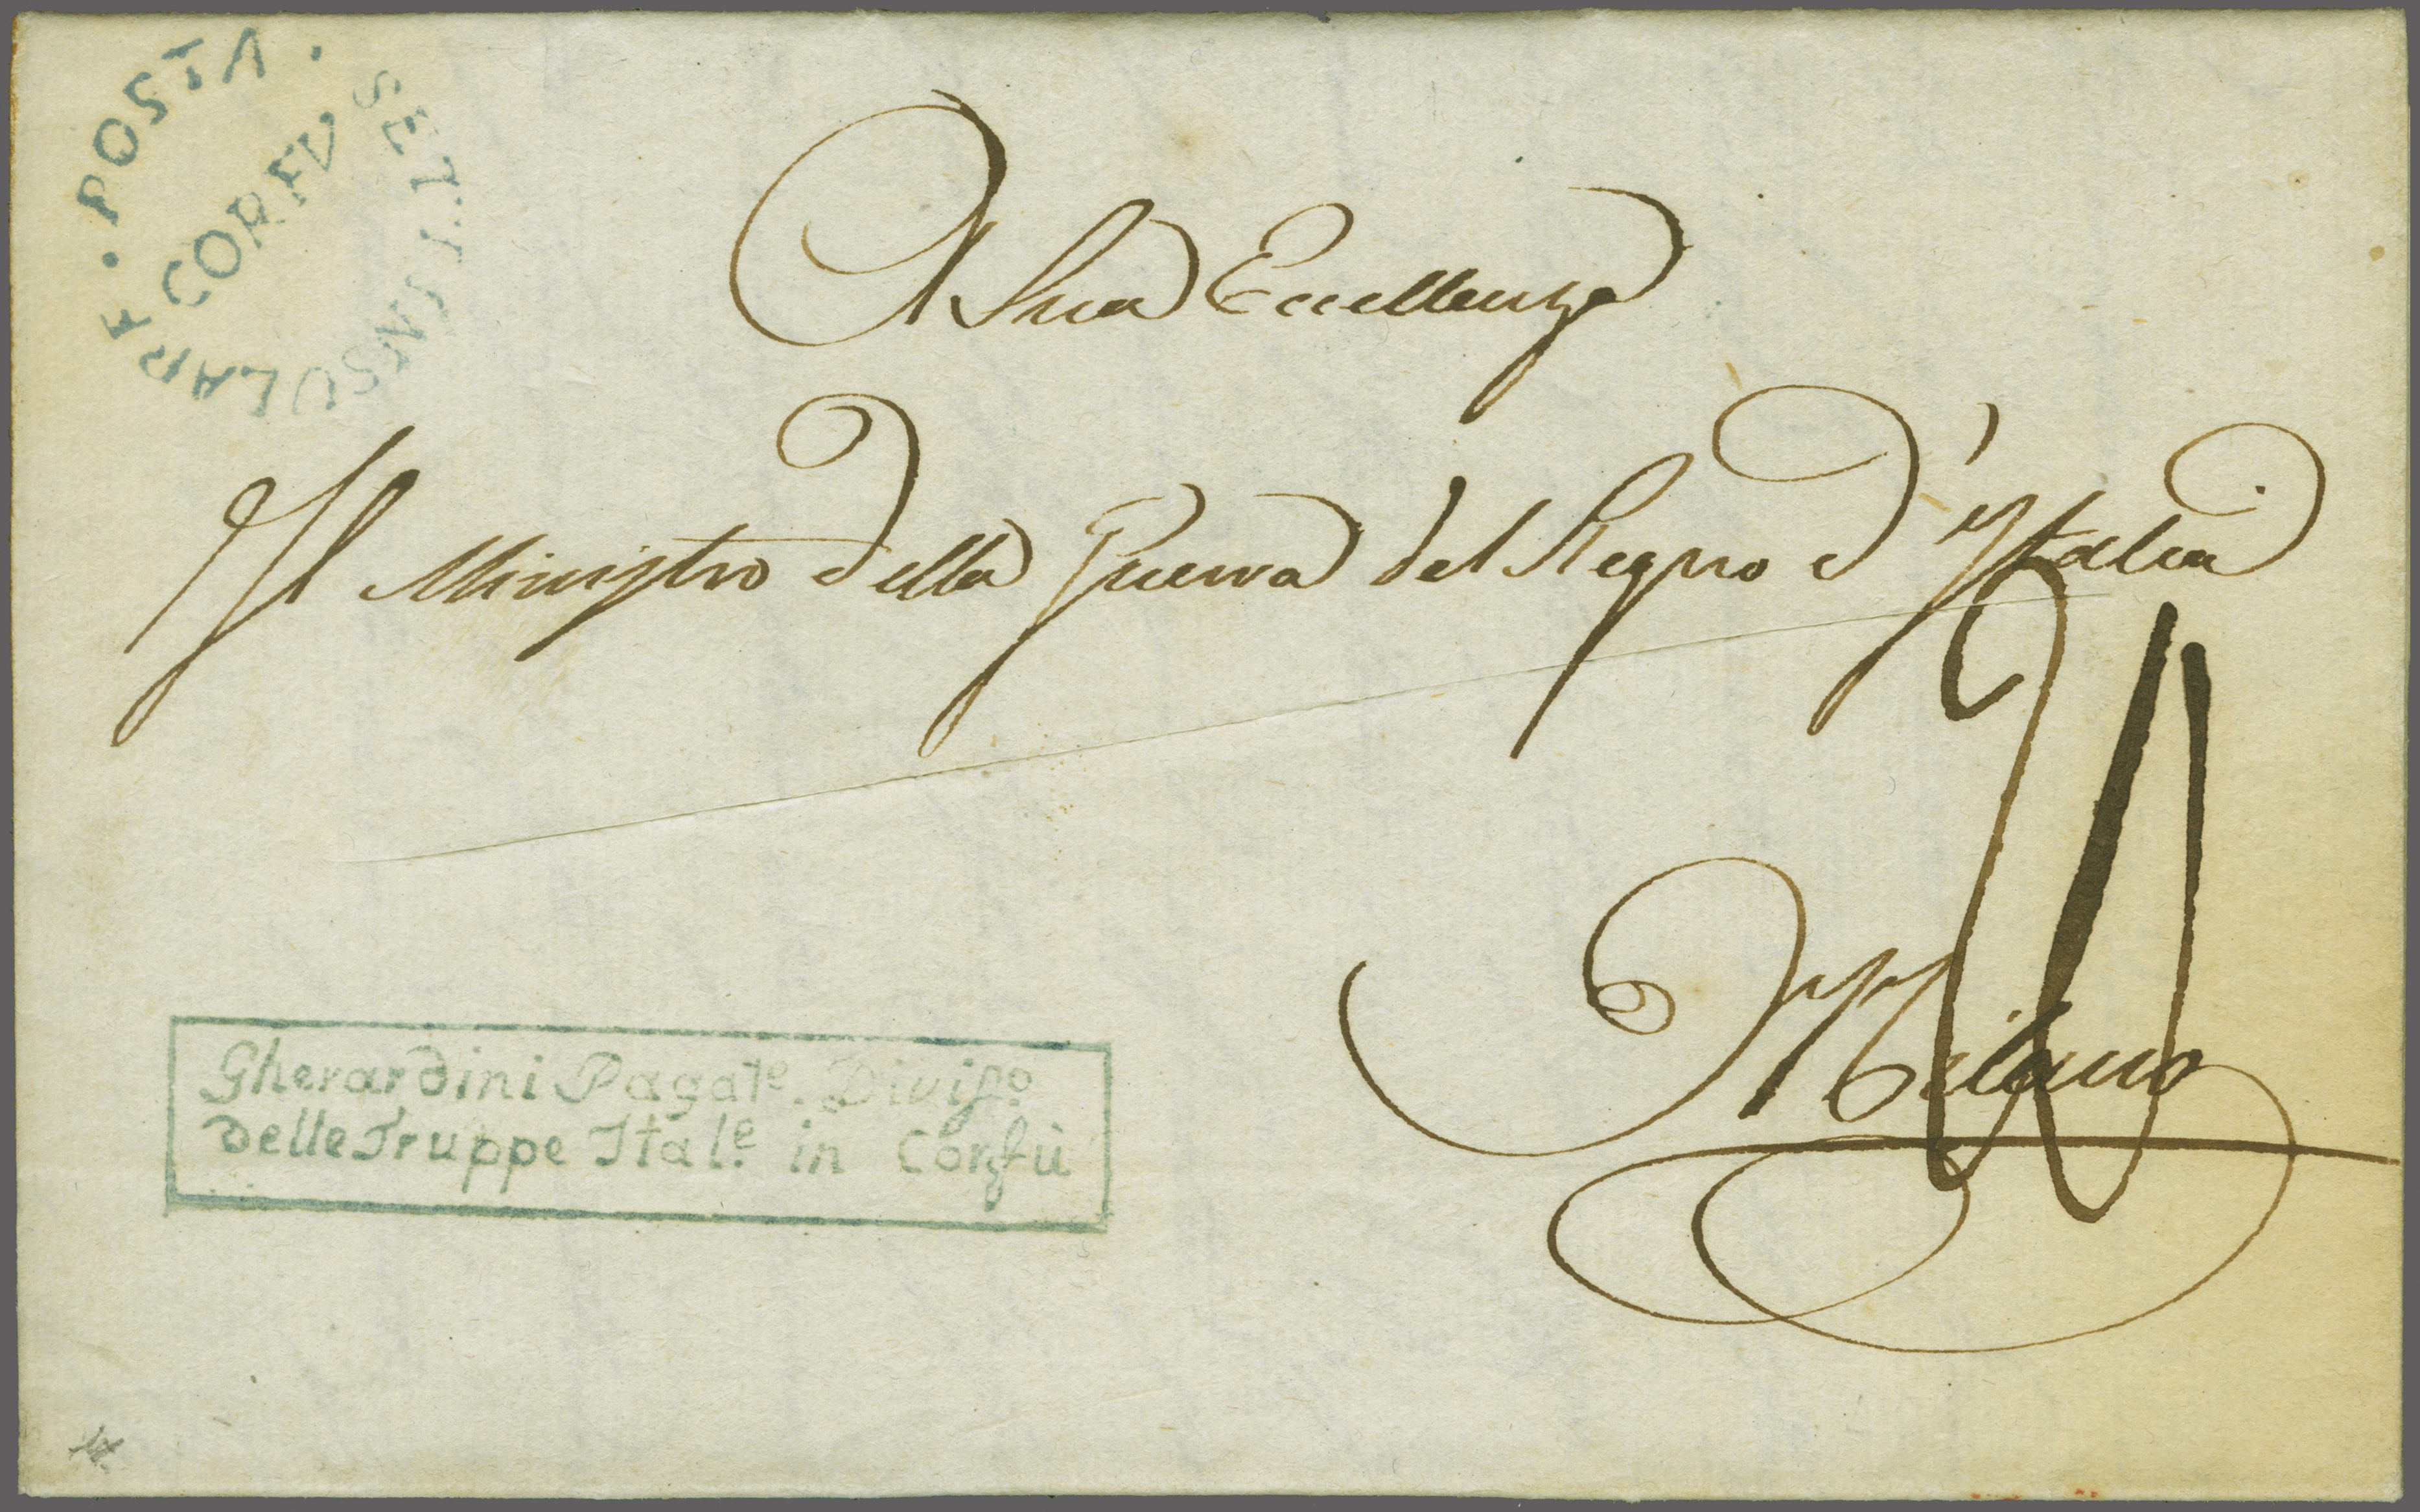 . POSTA . SETTINSULARE
CORFU
A Sua Eccellenza
Il Ministro della Guerra del Regno d'Italia
Milano
Gherardini Pagate. Diviso
delle Truppe Itale. in Corfù